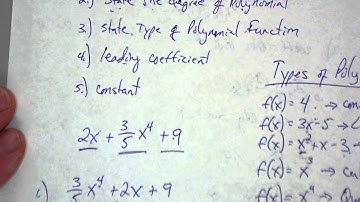 2.) State the degree of Polynomial
3.) State Type of Polynomial Function
4.) leading coefficient
5.) constant
2x + 3/5 x⁴ + 9
1.) 3/5 x⁴ + 2x + 9
Types of Poly
f(x) = 4 . → con
f(x) = 3x - 5 → L
f(x) = x² + x - 3 →
f(x) = x³ → Cu
f(x) = x⁴ → Qu